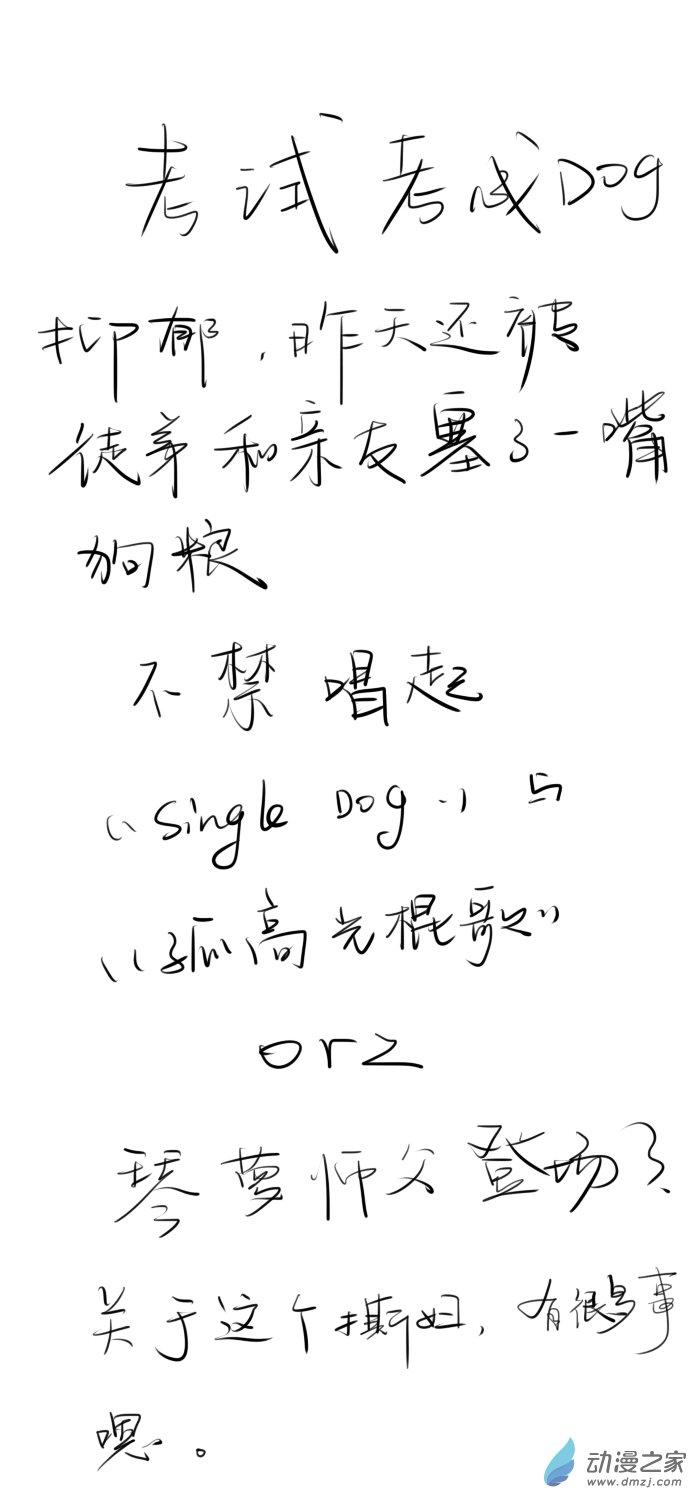 考试考成Dog
抑郁,昨天还被
徒弟和亲友塞了一嘴
狗粮
不禁唱起
“Single Dog”与
“孤高光棍歌”
orz
琴萝师父登场了
关于这个撕妞,有很多事
嗯。
动漫之家
www.dmzj.com